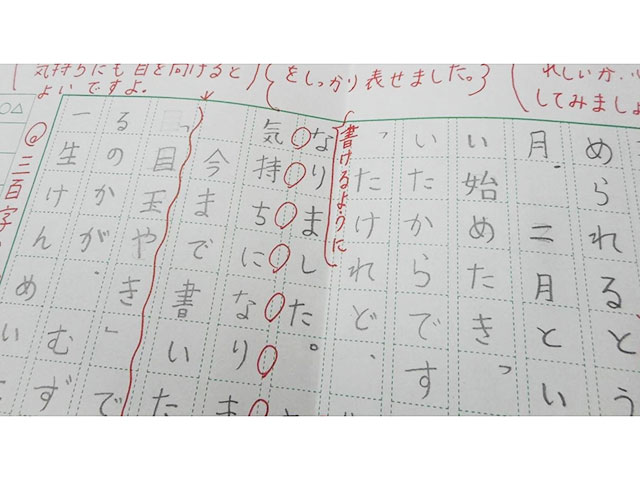 れしいか、い
してみましょ
をしっかり表せました。
気持ちにも目を向けると
よいですよ。
められるとう
月、二月とい
い始めたきっ
いたからです
ったけれど、
書けるように
なりました。
気持ちになりま
今まで書いた
目玉やき」で
るのかが、むず
一生けんめい
◎三百字